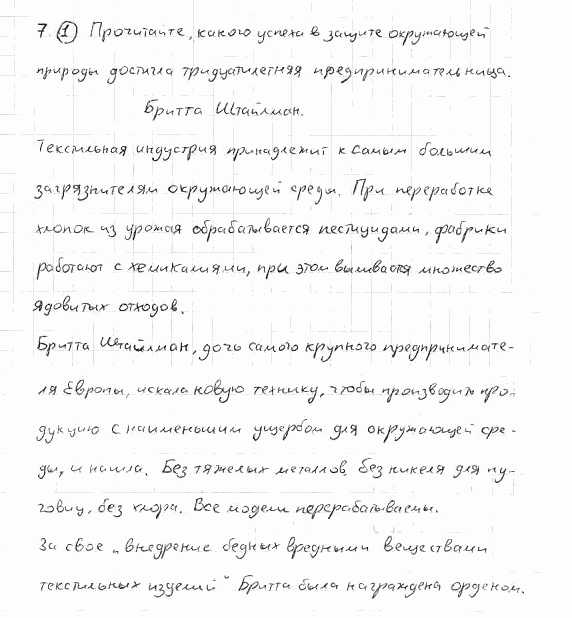 7. ① Прочитайте, какого успеха в защите окружающей
природы достигла тридцатилетняя предпринимательница.
Бритта Штайлман.
Текстильная индустрия принадлежит к самым большим
загрязнителям окружающей среды. При переработке
хлопок из урожая обрабатывается пестицидами, фабрики
работают с хемикалиями, при этом выливается множество
ядовитых отходов.
Бритта Штайлман, дочь самого крупного предпринимате-
ля Европы, искала новую технику, чтобы производить про-
дукцию с наименьшим ущербом для окружающей сре-
ды, и нашла. Без тяжелых металлов, без никеля для пу-
говиц, без хлора. Все модели перерабатываемы.
За свое „внедрение бедных вредными веществами
текстильных изделий" Бритта была награждена орденом.